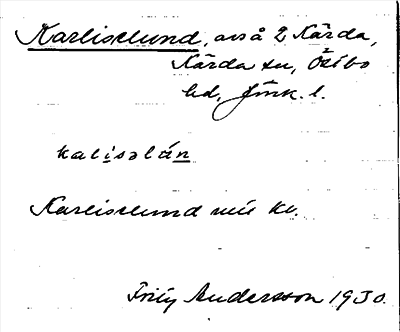 Karlislund, avs å 2 Kärda,
Kärda sn, Östbo
hd, Jönk. l.
kalisəlún
Karlislund mis kv.
Andersson 1930.